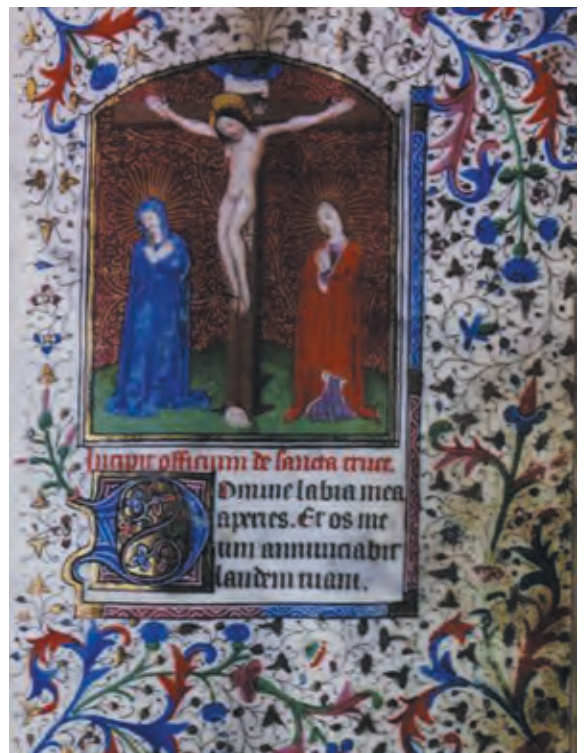 Incipit officium de sancta cruce
Domine labia mea
aperies. Et os me
um annunciabit
laudem tuam.